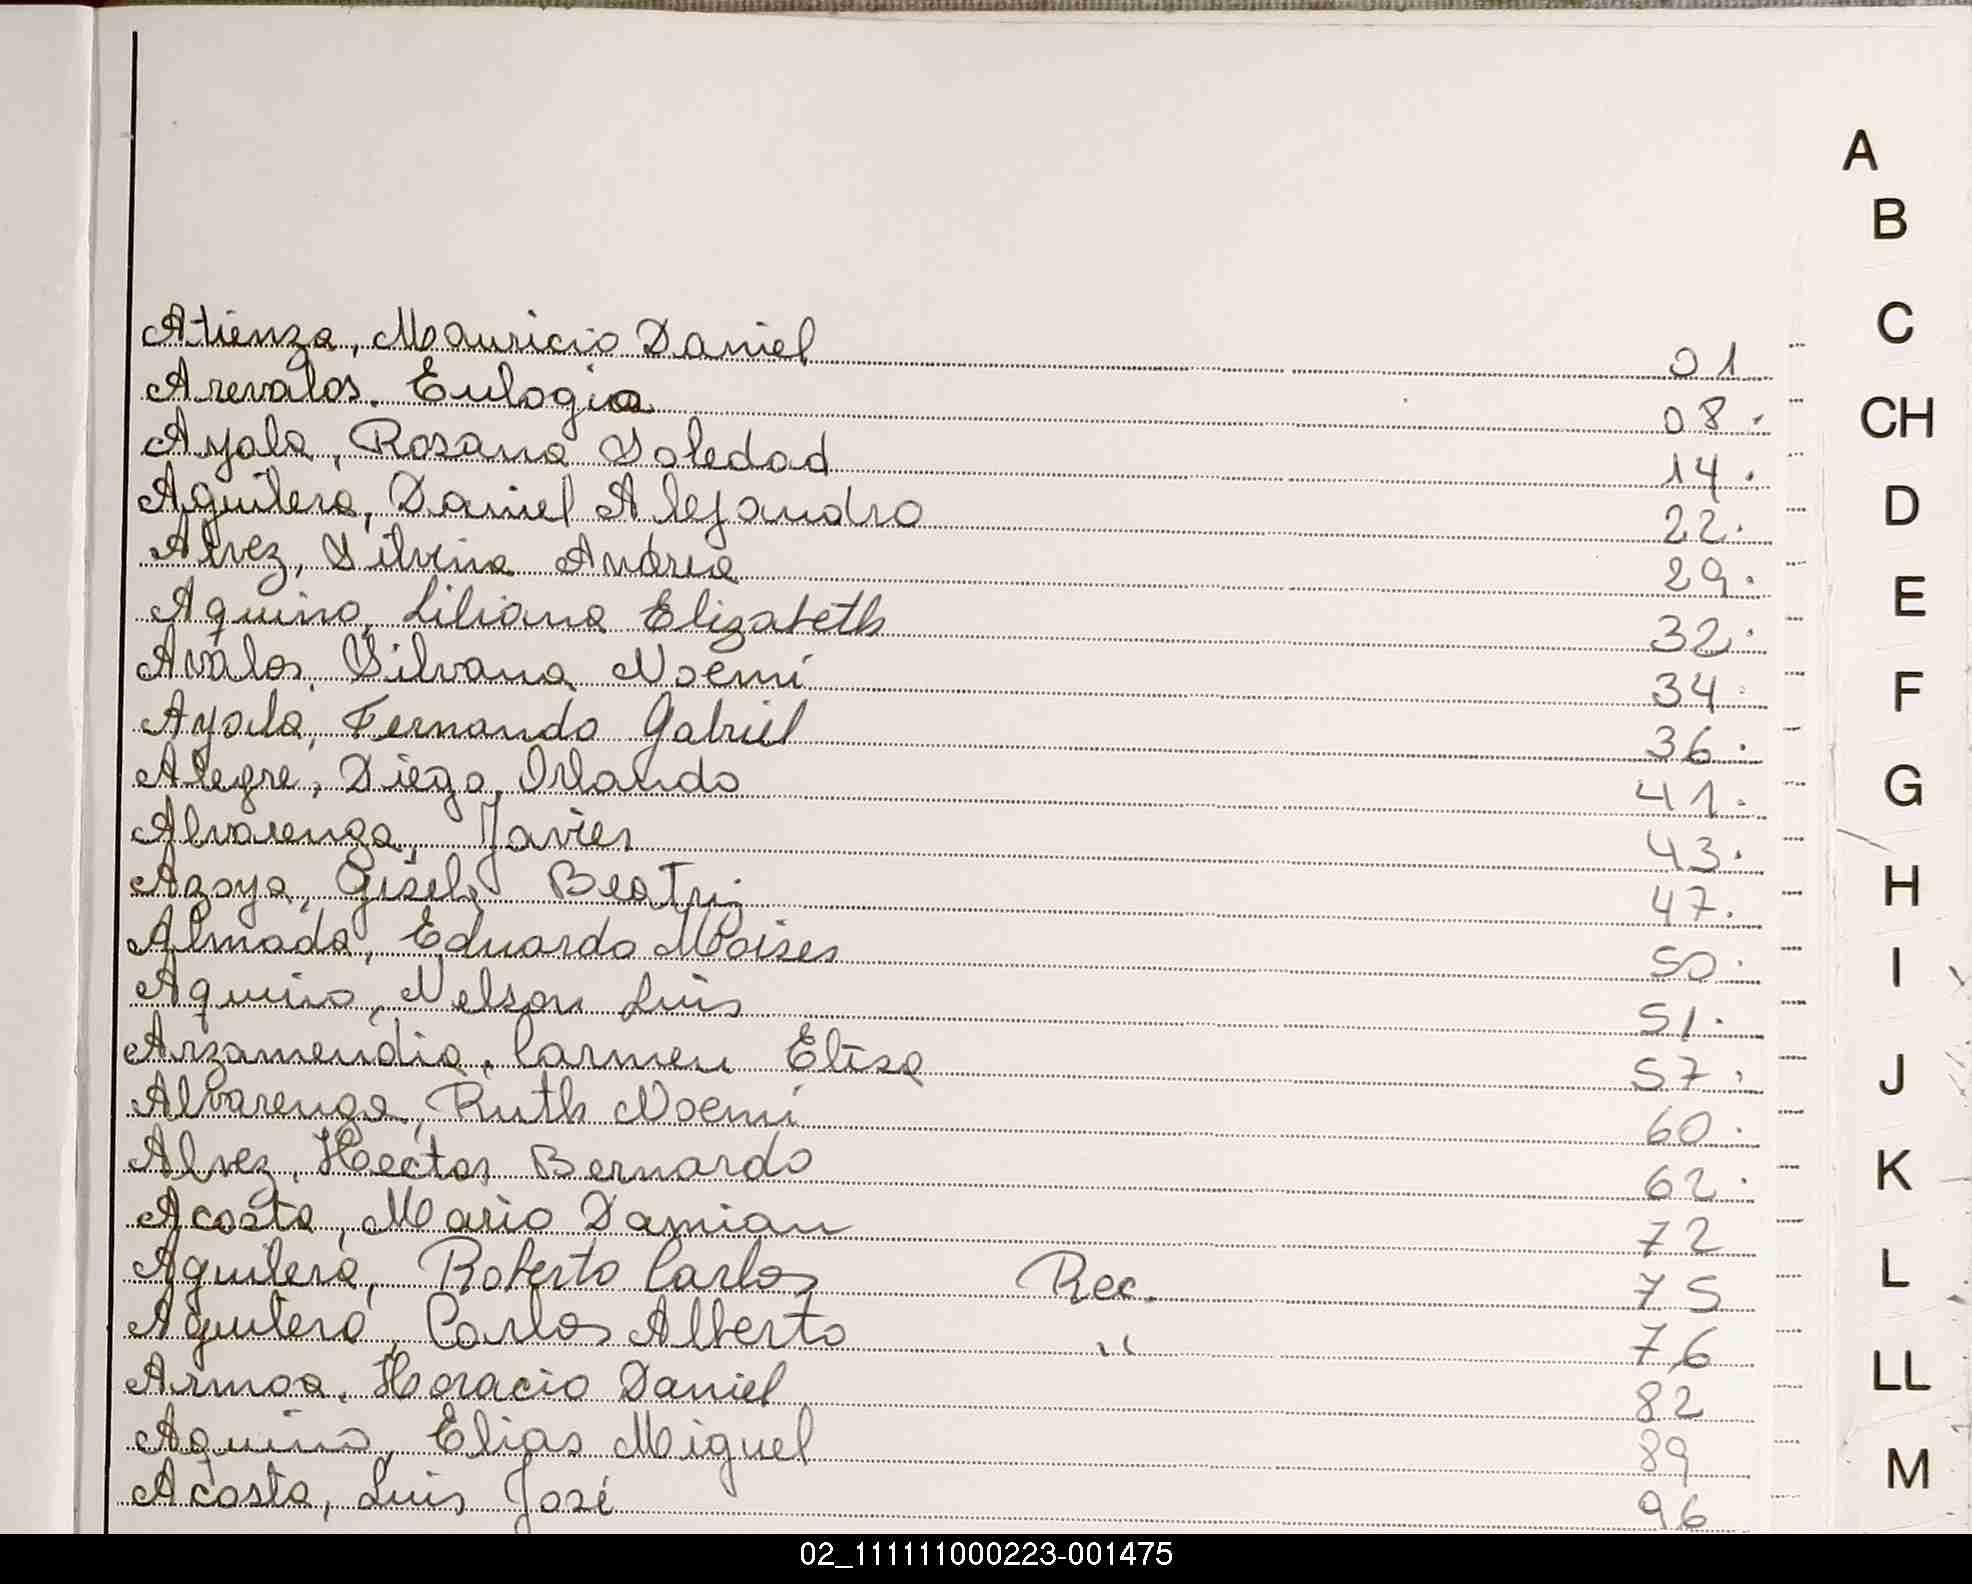 Atienza, Mauricio Daniel 01
Arevalos. Eulogia 08.
Ayala, Rosana Soledad 14.
Aguilera, Daniel Alejandro 22.
Alvez, Silvina Andrea 29.
Aquino, Liliana Elizabeth 32.
Avalos, Silvana Noemi 34.
Ayala, Fernando Gabriel 36.
Alegre, Diego Orlando 41.
Alvarenga, Javier 43.
Azoya, Gisela Beatriz 47.
Almada, Eduardo Moises 50.
Aquino, Nelson Luis 51.
Arzamendia, Carmen Elisa 57.
Alvarenga, Ruth Noemi 60.
Alvez, Hector Bernardo 62.
Acosta, Mario Damian 72
Aguilera, Roberto Carlos Rec. 75
Aguilera, Carlos Alberto " 76
Armoa, Horacio Daniel 82
Aquino, Elias Miguel 89
Acosta, Luis José 96
A
B
C
CH
D
E
F
G
H
I
J
K
L
LL
M
02_111111000223-001475